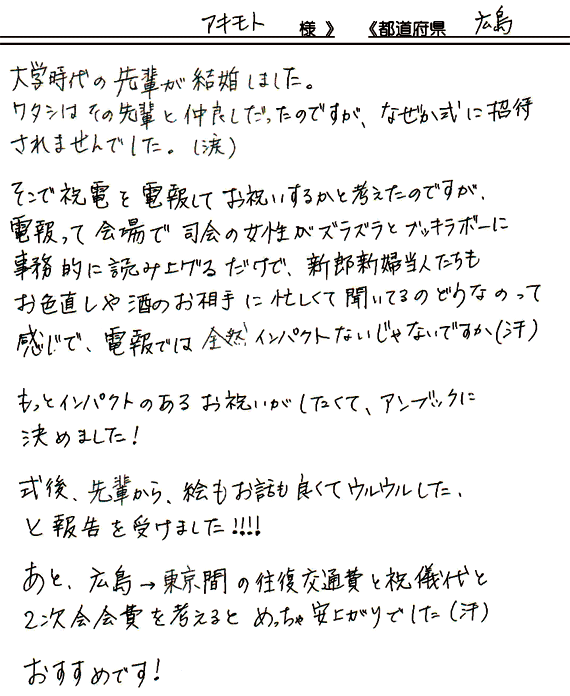 アキモト 様 》 《都道府県 広島
大学時代の先輩が結婚しました。
ワタシはその先輩と仲良しだったのですが、なぜか式に招待
されませんでした。(涙)
そこで祝電を電報してお祝いするかと考えたのですが、
電報って会場で司会の女性がズラズラとブッキラボーに
事務的に読み上げるだけで、新郎新婦当人たちも
お色直しや酒のお相手に忙しくて聞いてるのどうなのって
感じで、電報では全然インパクトないじゃないですか(汗)
もっとインパクトのあるお祝いがしたくて、アンブックに
決めました!
式後、先輩から、絵もお話も良くてウルウルした、
と報告を受けました!!!!
あと、広島→東京間の往復交通費と祝儀代と
2次会会費を考えるとめっちゃ安上がりでした(汗)
おすすめです!